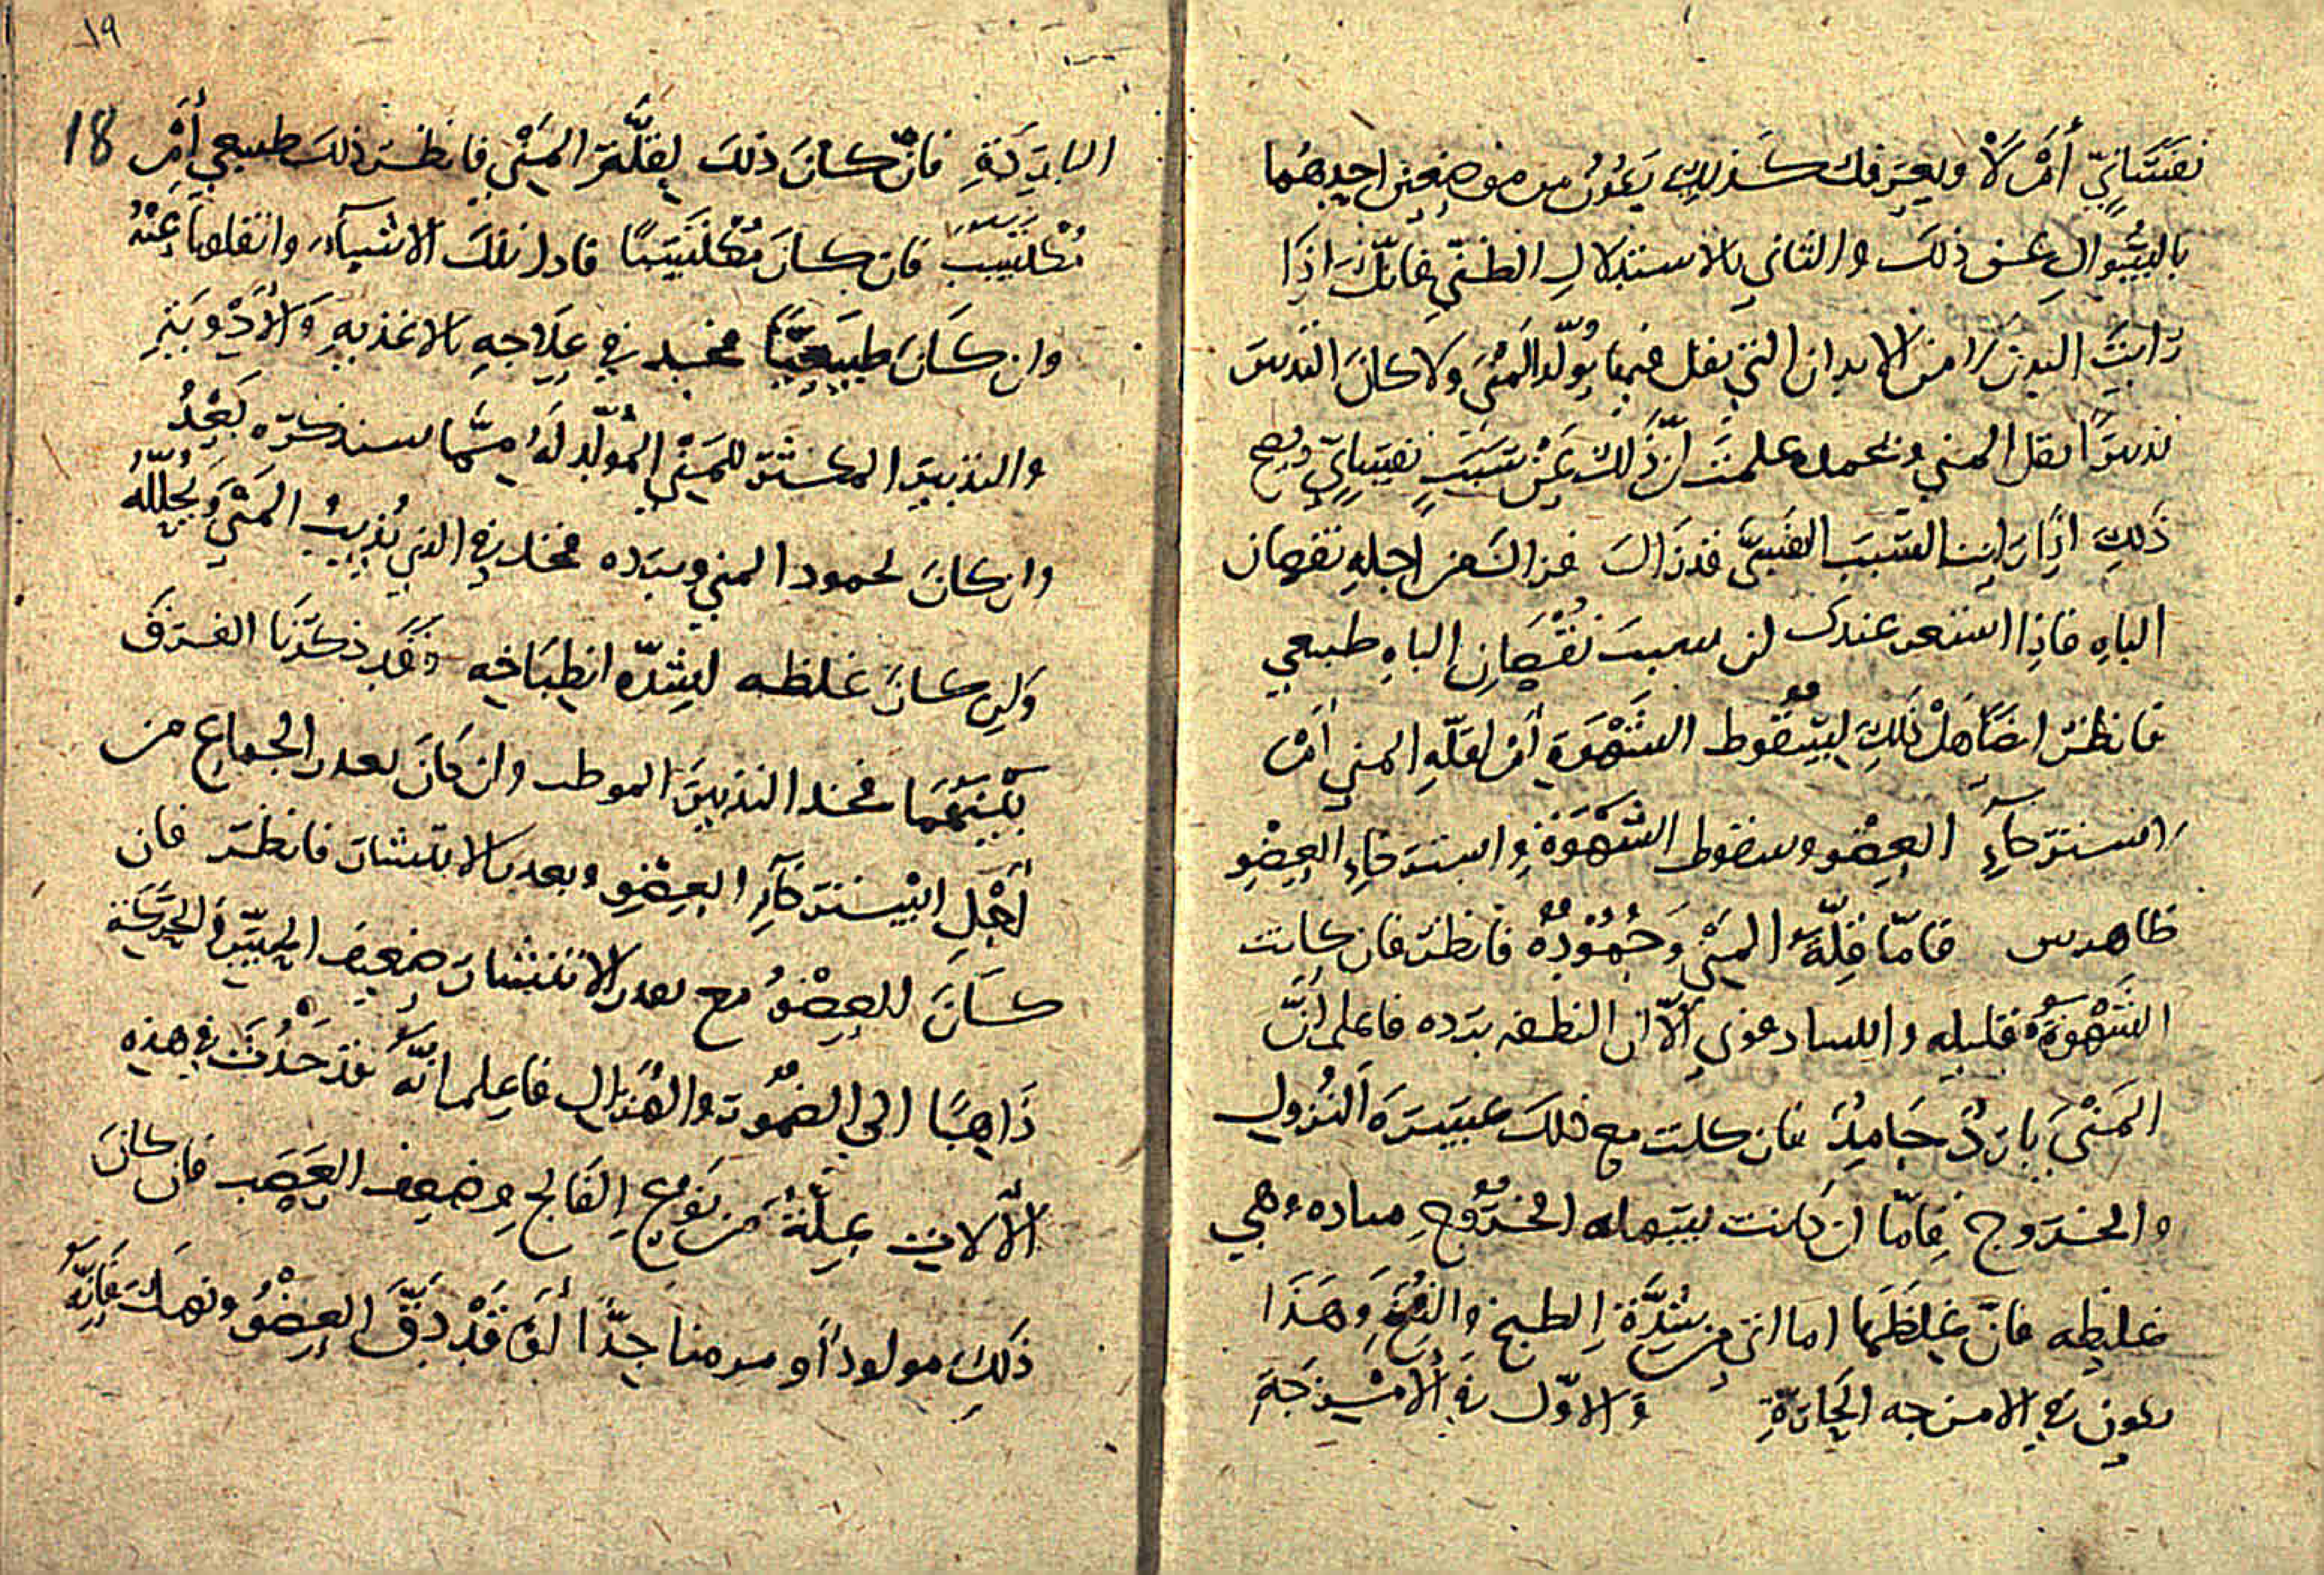 نفسَانيّ أمْ لَا وتعرفك كذلِك يكون من موضعين احدِهُما
بالسُّوالِ عن ذلكَ والثاني بالاستدلال الظنّي فانّك اذِا
رَايتَ البدن من الابدان التي يقل فيها تولّد المني ولا كانَ التدبير
تدبيرًا يقل المني ويجمده علمت انّ ذلك عَنْ سَبَبٍ نفسانيّ ويصح
ذَلِك اذِا رَاينا السّبَبَ النفسيَّ قد زال فزال من اجلِهِ نقصان
الباهِ فاذِا استقر عندك ان سبب نُقْصَانِ الباهِ طبيعي
فانظرْ ايضًا هَلْ ذلِكَ لسُقُوط الشَهْوَةِ أمْ لقلّهِ المني أمْ
استرخآءِ العِضْو وسقوط الشَهْوَة واسترخاءِ العِضْوِ
ظاهرين فامّا قِلّةُ المَنْي وَجُمُودُهُ فانظرْ فان كانت
الشَهْوَةُ قليله والـ إلّا ان النطفه بَرده فاعلم انَّ
المَنْيَ بارِدٌ جَامِدٌ فان كانت مع ذلك عَسِرَة النُزول
والخروج فامّا ان كانت سهله الخُرُوجِ وهي
غليظه فانّ غِلَظَهَا اما اتي من شِدَّةِ الطبخ والنضج وَهَذَا
يكون في الامزجه الحَارّةِ وَالاوّل في الأمْزِجَةِ
١٩
18
البَارِدَةِ فانْ كانَ ذلكَ لقلّةِ المَنْيِ فانظرْ ذلكَ طبيعي أمْ
مُكْتَسَبٌ فان كانَ مُكْتَسَبًا فادا تلكَ الاشيآء وانقلها عَنْهُ
وان كَانَ طبيعيًّا فخذ في عِلَاجِهِ بالاغذيهِ وَالأدْوِيَةِ
والتدبير المكثر للمَنْيِ المُولّد لهُ مِمّا سنذكرهُ بَعْدُ
وان كانَ لجمود المني وبَرده فخذ في الذي يُذيبُ المَنْيَ وَيُحلّلُه
وَان كانَ غلظه لِشدّهِ انطِبَاخِه فَقَد ذكرْنَا الفرْقَ
بَيْنَهُمَا فخذ التدبيرَ المرطب وان كانَ تعذر الجماعِ من
أجْلِ اسْترخآءِ العِضْوِ وتعذر الانتشار فانظرْ فان
كانَ العِضْوُ مع تعذر الانتشار ضعِيفَ الحِسّ والحَرَكَة
ذَاهِبًا الي الضُمُور والهُزال فاعلم انَّهُ قد حَدَثَ في هذِه
الآلات عِلّةٌ من نَوْعِ الفَالِجِ وضعف العَصَب فان كانَ
ذَلِك مولودًا أو مزمنا جِدًّا أوْ قَدْ دَقَّ العِضْوُ ونَهك فَانّهُ